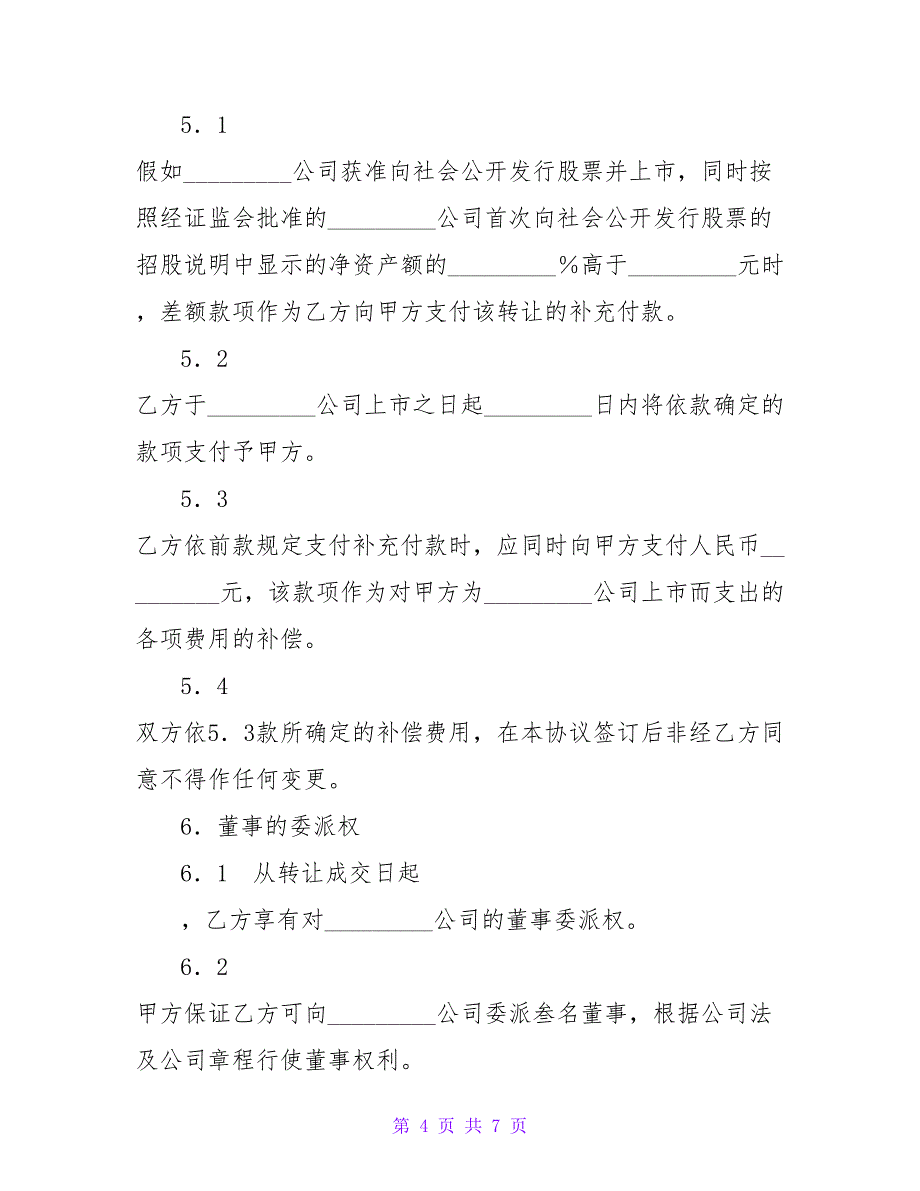 5．1
假如_________公司获准向社会公开发行股票并上市，同时按
照经证监会批准的_________公司首次向社会公开发行股票的
招股说明中显示的净资产额的_________％高于_________元时
，差额款项作为乙方向甲方支付该转让的补充付款。
5．2
乙方于_________公司上市之日起_________日内将依款确定的
款项支付予甲方。
5．3
乙方依前款规定支付补充付款时，应同时向甲方支付人民币__
_______元，该款项作为对甲方为_________公司上市而支出的
各项费用的补偿。
5．4
双方依5．3款所确定的补偿费用，在本协议签订后非经乙方同
意不得作任何变更。
6．董事的委派权
6．1　从转让成交日起
，乙方享有对_________公司的董事委派权。
6．2
甲方保证乙方可向_________公司委派叁名董事，根据公司法
及公司章程行使董事权利。
第 4 页 共 7 页